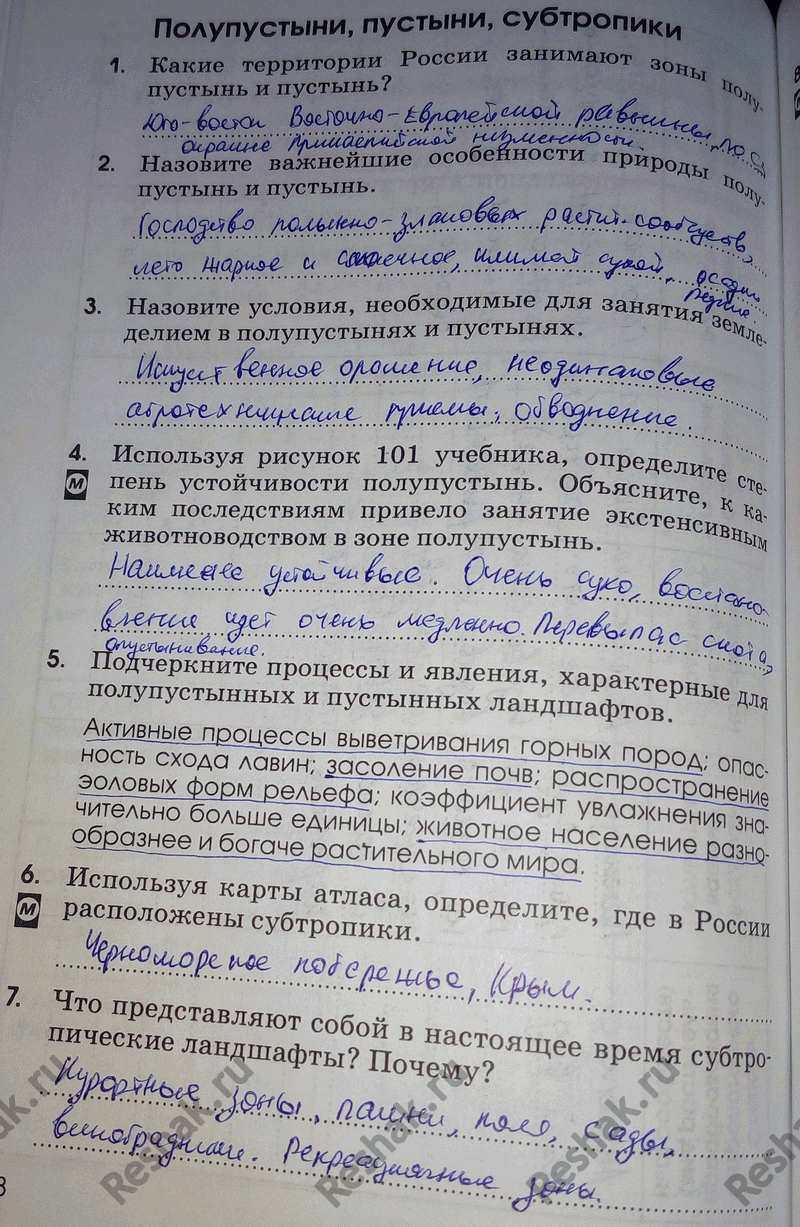 Полупустыни, пустыни, субтропики
1. Какие территории России занимают зоны полу-
пустынь и пустынь?
Юго-восток Восточно-Европейской равнины, по
окраине Прикаспийской низменности.
2. Назовите важнейшие особенности природы полу-
пустынь и пустынь.
Господство полынно-злаковых растит. сообществ,
лето жаркое и солнечное, климат сухой, осадки
редкие.
3. Назовите условия, необходимые для занятия земле-
делием в полупустынях и пустынях.
Искусственное орошение, неодинаковые
агротехнические приемы, обводнение.
4. Используя рисунок 101 учебника, определите сте-
М пень устойчивости полупустынь. Объясните, к ка-
ким последствиям привело занятие экстенсивным
животноводством в зоне полупустынь.
Наименее устойчивые. Очень сухо, восстано-
вление идет очень медленно. Перевыпас скота,
опустынивание.
5. Подчеркните процессы и явления, характерные для
полупустынных и пустынных ландшафтов.
Активные процессы выветривания горных пород; опас-
ность схода лавин; засоление почв; распространение
эоловых форм рельефа; коэффициент увлажнения зна-
чительно больше единицы; животное население разно-
образнее и богаче растительного мира.
6. Используя карты атласа, определите, где в России
М расположены субтропики.
Черноморское побережье, Крым.
7. Что представляют собой в настоящее время субтро-
пические ландшафты? Почему?
Курортные зоны, пашни, поле, сады,
виноградники. Рекреационные зоны.
Reshak.ru Reshak.ru Reshak.ru
Reshak.ru Reshak.ru Reshak.ru